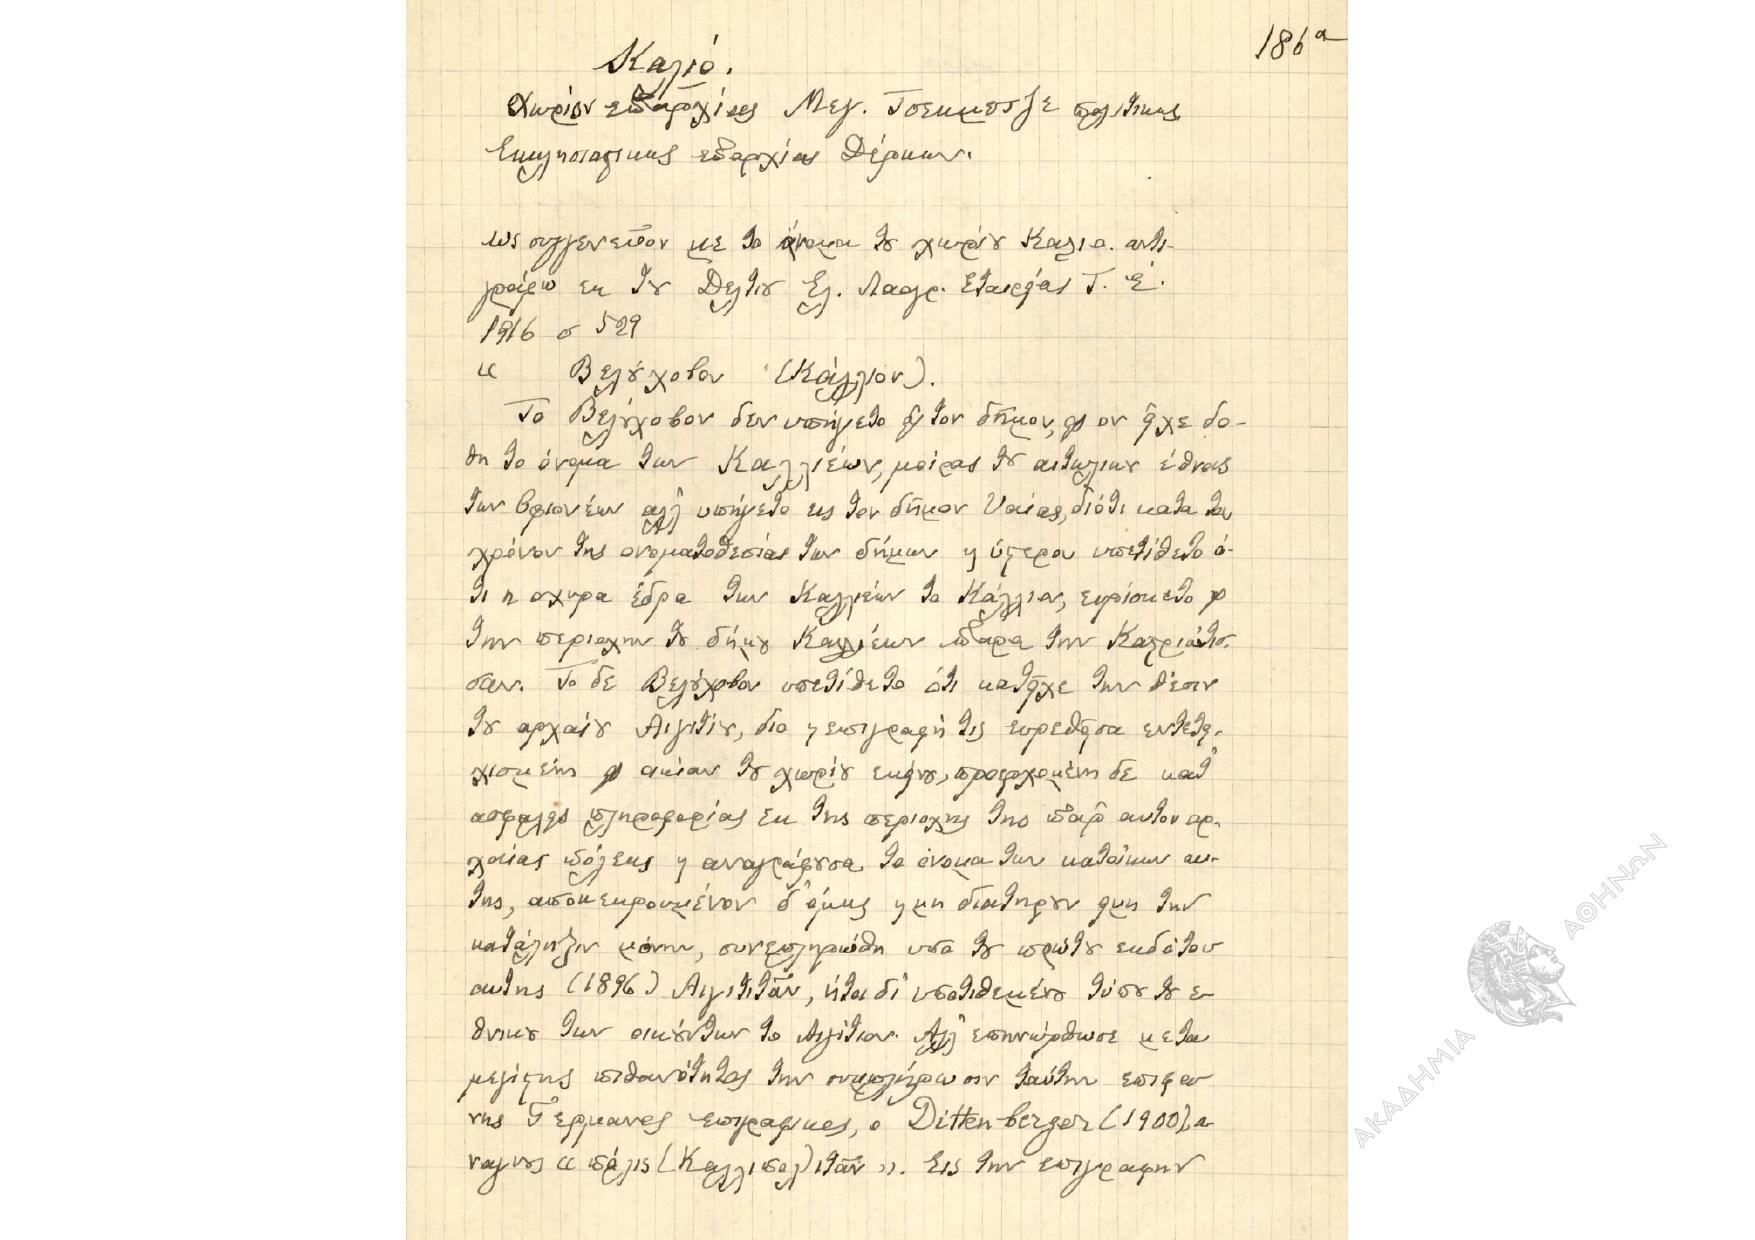 186α
Καλιό.
Χωρίον επαρχίας Μεγ. Τσεκμετζέ πολιτικώς
Εκκλησιαστικώς επαρχίας Δέρκων.
ως συγγενεύον με το όνομα του χωρίου Καλιο. αντι-
γράφω εκ του Δελτίου Ελ. Λαογρ. Εταιρείας Τ. Έ.
1916 σ 529
« Βελούχοβον (Κάλλιον).
Το Βελούχοβον δεν υπήγετο εις τον δήμον, εις ον είχε δο-
θη το όνομα των Καλλιέων, μοίρας του αιτωλικού έθνους
των Οφιονέων αλλ' υπήγετο εις τον δήμον Υαίας, διότι κατά τον
χρόνον της ονοματοθεσίας των δήμων και ύστερον υπετίθετο ό-
τι η οχυρά έδρα των Καλλιέων το Κάλλιον, ευρίσκετο εις
την περιοχήν του δήμου Καλλιέων παρά την
σαν. Το δε Βελούχοβον υπετίθετο ότι κατείχε την θέσιν
του αρχαίου Αιγιτίου, διο και επιγραφή τις ευρεθείσα εντετει-
χισμένη εις οικίαν του χωρίου εκείνου, προερχομένη δε κατ'
ασφαλείς πληροφορίας εκ της περιοχής της παρ' αυτόν αρ-
χαίας πόλεως και αναγράφουσα το όνομα των κατοίκων αυ-
της, αποκεκρουμένον δ' όμως και μη διατηρούν ειμή την
κατάληξιν μόνην, συνεπληρώθη υπό του πρώτου εκδότου
αυτής (1896) Αιγιτιτᾶν, ήτοι δι' υποτιθεμένου τύπου του ε-
θνικού των οικούντων το Αιγίτιον. Αλλ' επηνώρθωσε μετά
μεγίστης πιθανότητος την συμπλήρωσιν ταύτην επιφα-
νής Γερμανός επιγραφικός, ο Dittenberger (1900), α-
ναγνούς « πόλις (Καλλιπολ)ιτᾶν ». Εις την επιγραφήν
ΑΚΑΔΗΜΙΑ ΑΘΗΝΩΝ